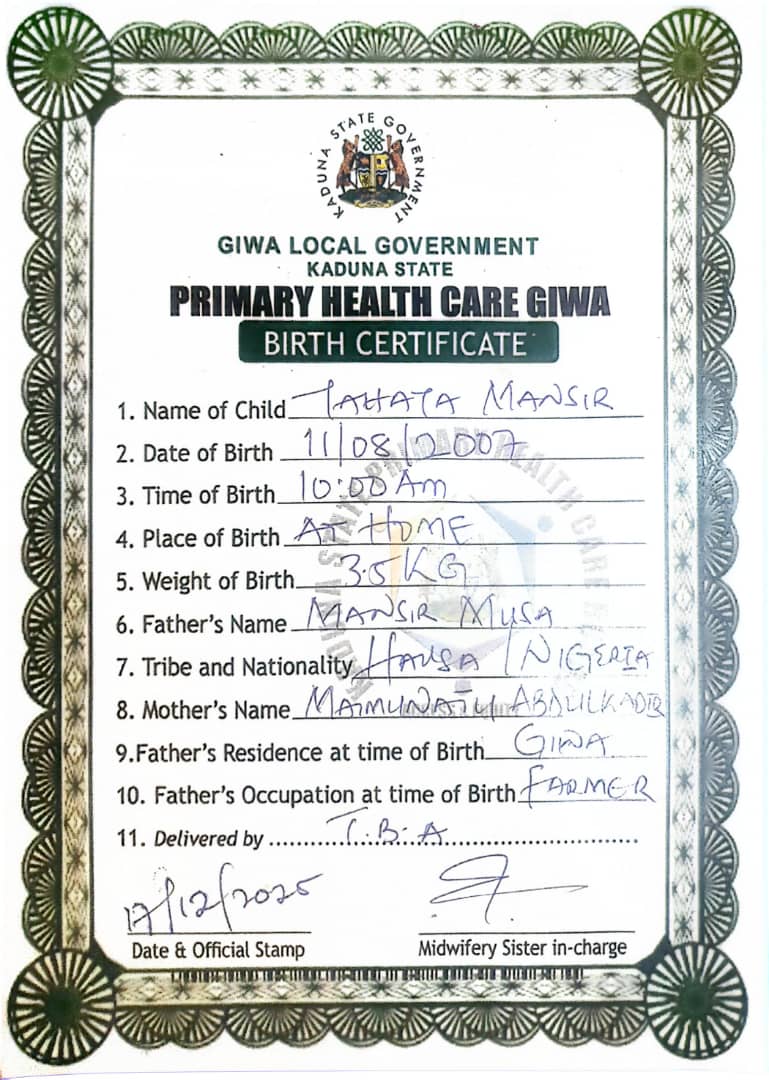 KADUNA STATE GOVERNMENT
GIWA LOCAL GOVERNMENT
KADUNA STATE
PRIMARY HEALTH CARE GIWA
BIRTH CERTIFICATE
1. Name of Child TAHATA MANSIR
2. Date of Birth 11/08/2007
3. Time of Birth 10:00 Am
4. Place of Birth AT HOME
5. Weight of Birth 3.5KG
6. Father's Name MANSIR MUSA
7. Tribe and Nationality HAUSA / NIGERIA
8. Mother's Name MAIMUNATU ABDULKADIR
9.Father's Residence at time of Birth GIWA
10. Father's Occupation at time of Birth FARMER
11. Delivered by T.B.A
17/12/2025
Date & Official Stamp
Midwifery Sister in-charge